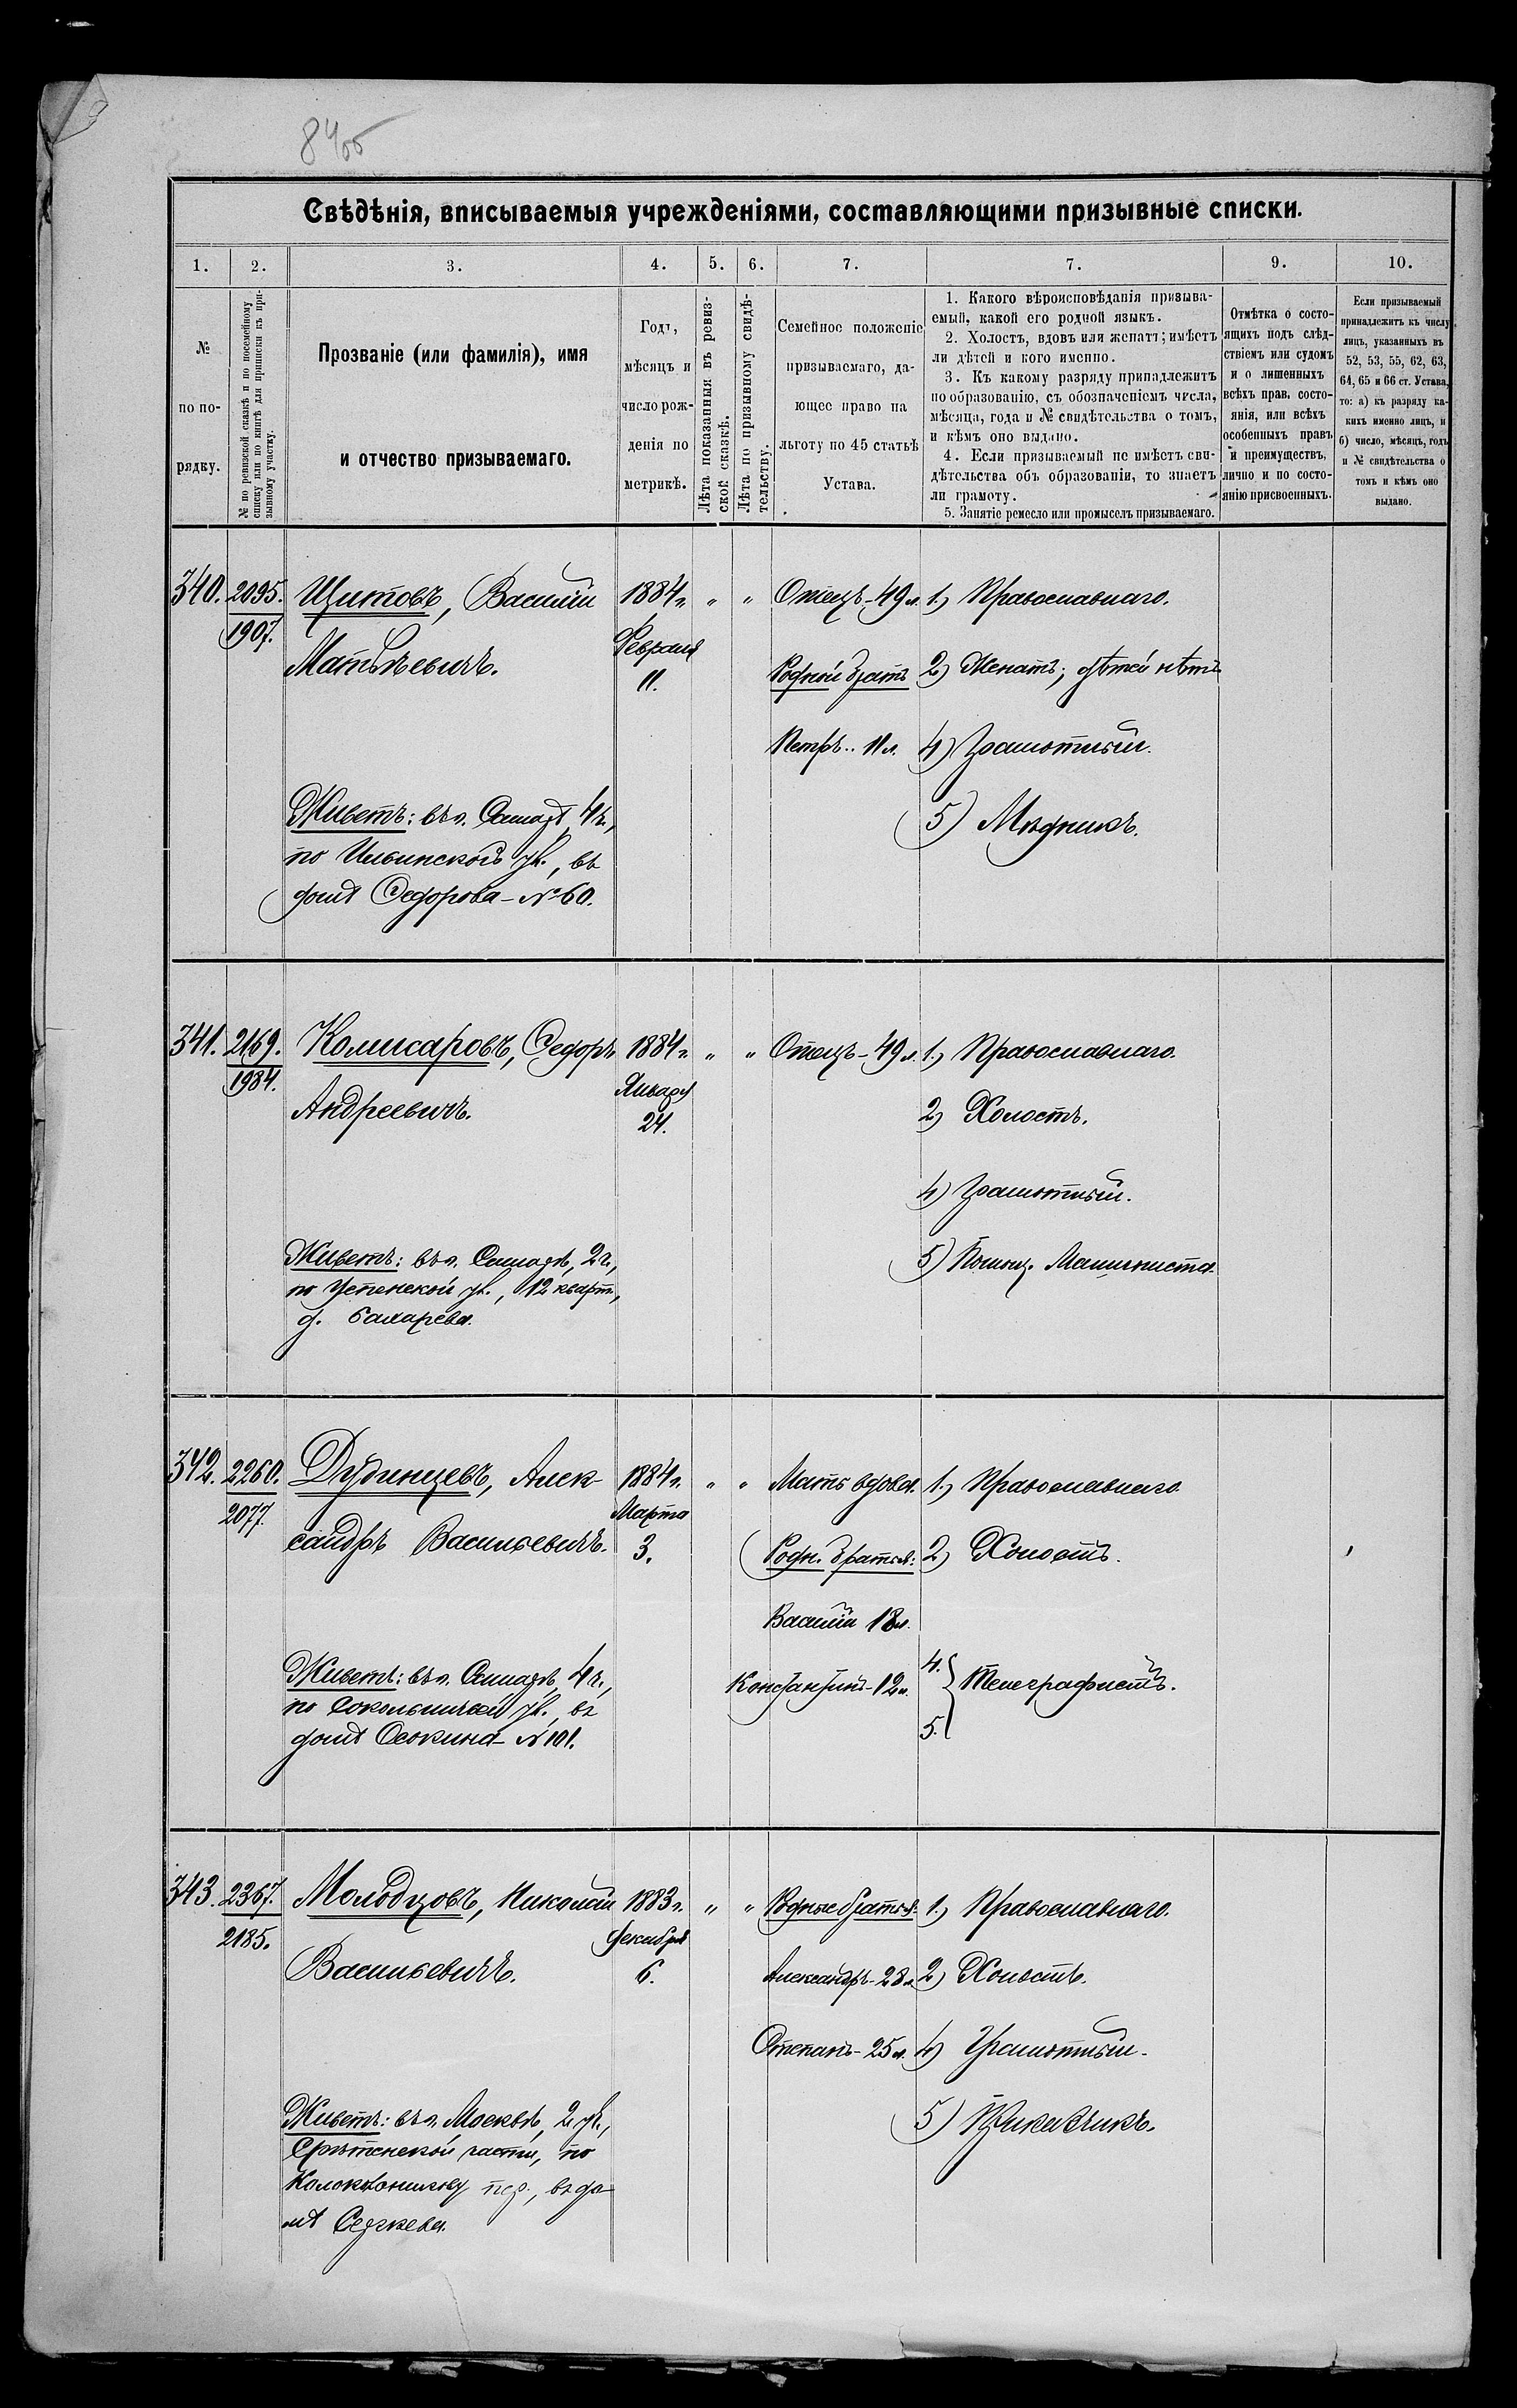 84об
Свѣдѣнія, вписываемыя учрежденіями, составляющими призывные списки.
1. 2. 3. 4. 5. 6. 7. 7. 9. 10.
№ по порядку.
№ по ревизской сказкѣ и по посемейному списку или по книгѣ для приписки къ призывному участку.
Прозваніе (или фамилія), имя
и отчество призываемаго.
Годъ,
мѣсяцъ и
число рож-
денія по
метрикѣ.
Лѣта показанныя въ ревиз-
ской сказкѣ.
Лѣта по призывному свидѣ-
тельству.
Семейное положеніе
призываемаго, да-
ющее право на
льготу по 45 статьѣ
Устава.
1. Какого вѣроисповѣданія призыва-
емый, какой его родной языкъ.
2. Холостъ, вдовъ или женатъ; имѣетъ
ли дѣтей и кого именно.
3. Къ какому разряду принадлежитъ
по образованію, съ обозначеніемъ числа,
мѣсяца, года и № свидѣтельства о томъ,
и кѣмъ оно выдано.
4. Если призываемый не имѣетъ сви-
дѣтельства объ образованіи, то знаетъ
ли грамоту.
5. Занятіе ремесло или промыселъ призываемаго.
Отмѣтка о состо-
ящихъ подъ слѣд-
ствіемъ или судомъ
и о лишенныхъ
всѣхъ прав, состо-
янія, или всѣхъ
особенныхъ правъ
и преимуществъ,
лично и по состо-
янію присвоенныхъ.
Если призываемый
принадлежитъ къ числу
лицъ, указанныхъ въ
52, 53, 55, 62, 63,
64, 65 и 66 ст. Устава,
то: а) къ разряду ка-
кихъ именно лицъ, и
б) число, мѣсяцъ, годъ
и № свидѣтельства о
томъ и кѣмъ оно
выдано.
340. 2095. Щитовъ, Василій 1884 г. " " Отецъ - 49 л. 1.) Православнаго.
1907. Матвѣевичъ. Февраля
11.
Родной братъ 2) Женатъ; дѣтей нѣтъ
Петръ.. 11 л. 4) Грамотный.
Живетъ: въ г. Самарѣ, 4 ч., 5) Мѣдникъ.
по Ильинской ул., въ
домѣ Федорова - № 60.
341. 2169. Комисаровъ, Федоръ 1884 г. " " Отецъ - 49 л. 1.) Православнаго.
1984. Андреевичъ. Января
24.
2) Холостъ.
4) Грамотный.
Живетъ: въ г. Самарѣ, 2 ч., 5) Помощ. Машиниста.
по Успенской ул., 12 кварт.,
д.
342. 2260. Дудинцевъ, Алек- 1884 г. " " Мать вдова. 1.) Православнаго.
2077. сандръ Васильевичъ. Марта
3.
Родн. братья: 2) Холостъ.
Василій 18 л.
Живетъ: въ г. Самарѣ, 4 ч., Константинъ - 12 л. 4. 5. } Телеграфистъ.
по Сокольничьей ул., въ
домѣ Осокина - № 101.
343. 2367. Молодцовъ, Николай 1883 г. " " Родные братья: 1.) Православнаго.
2185. Васильевичъ. Декабря
6.
Александръ - 28 л. 2) Холостъ.
Степанъ - 25 л. 4) Грамотный.
Живетъ: въ г. Москвѣ, 2 уч., 5) Прикащикъ.
Срѣтенской части, по
Колокольникову пер., въ до-
мѣ